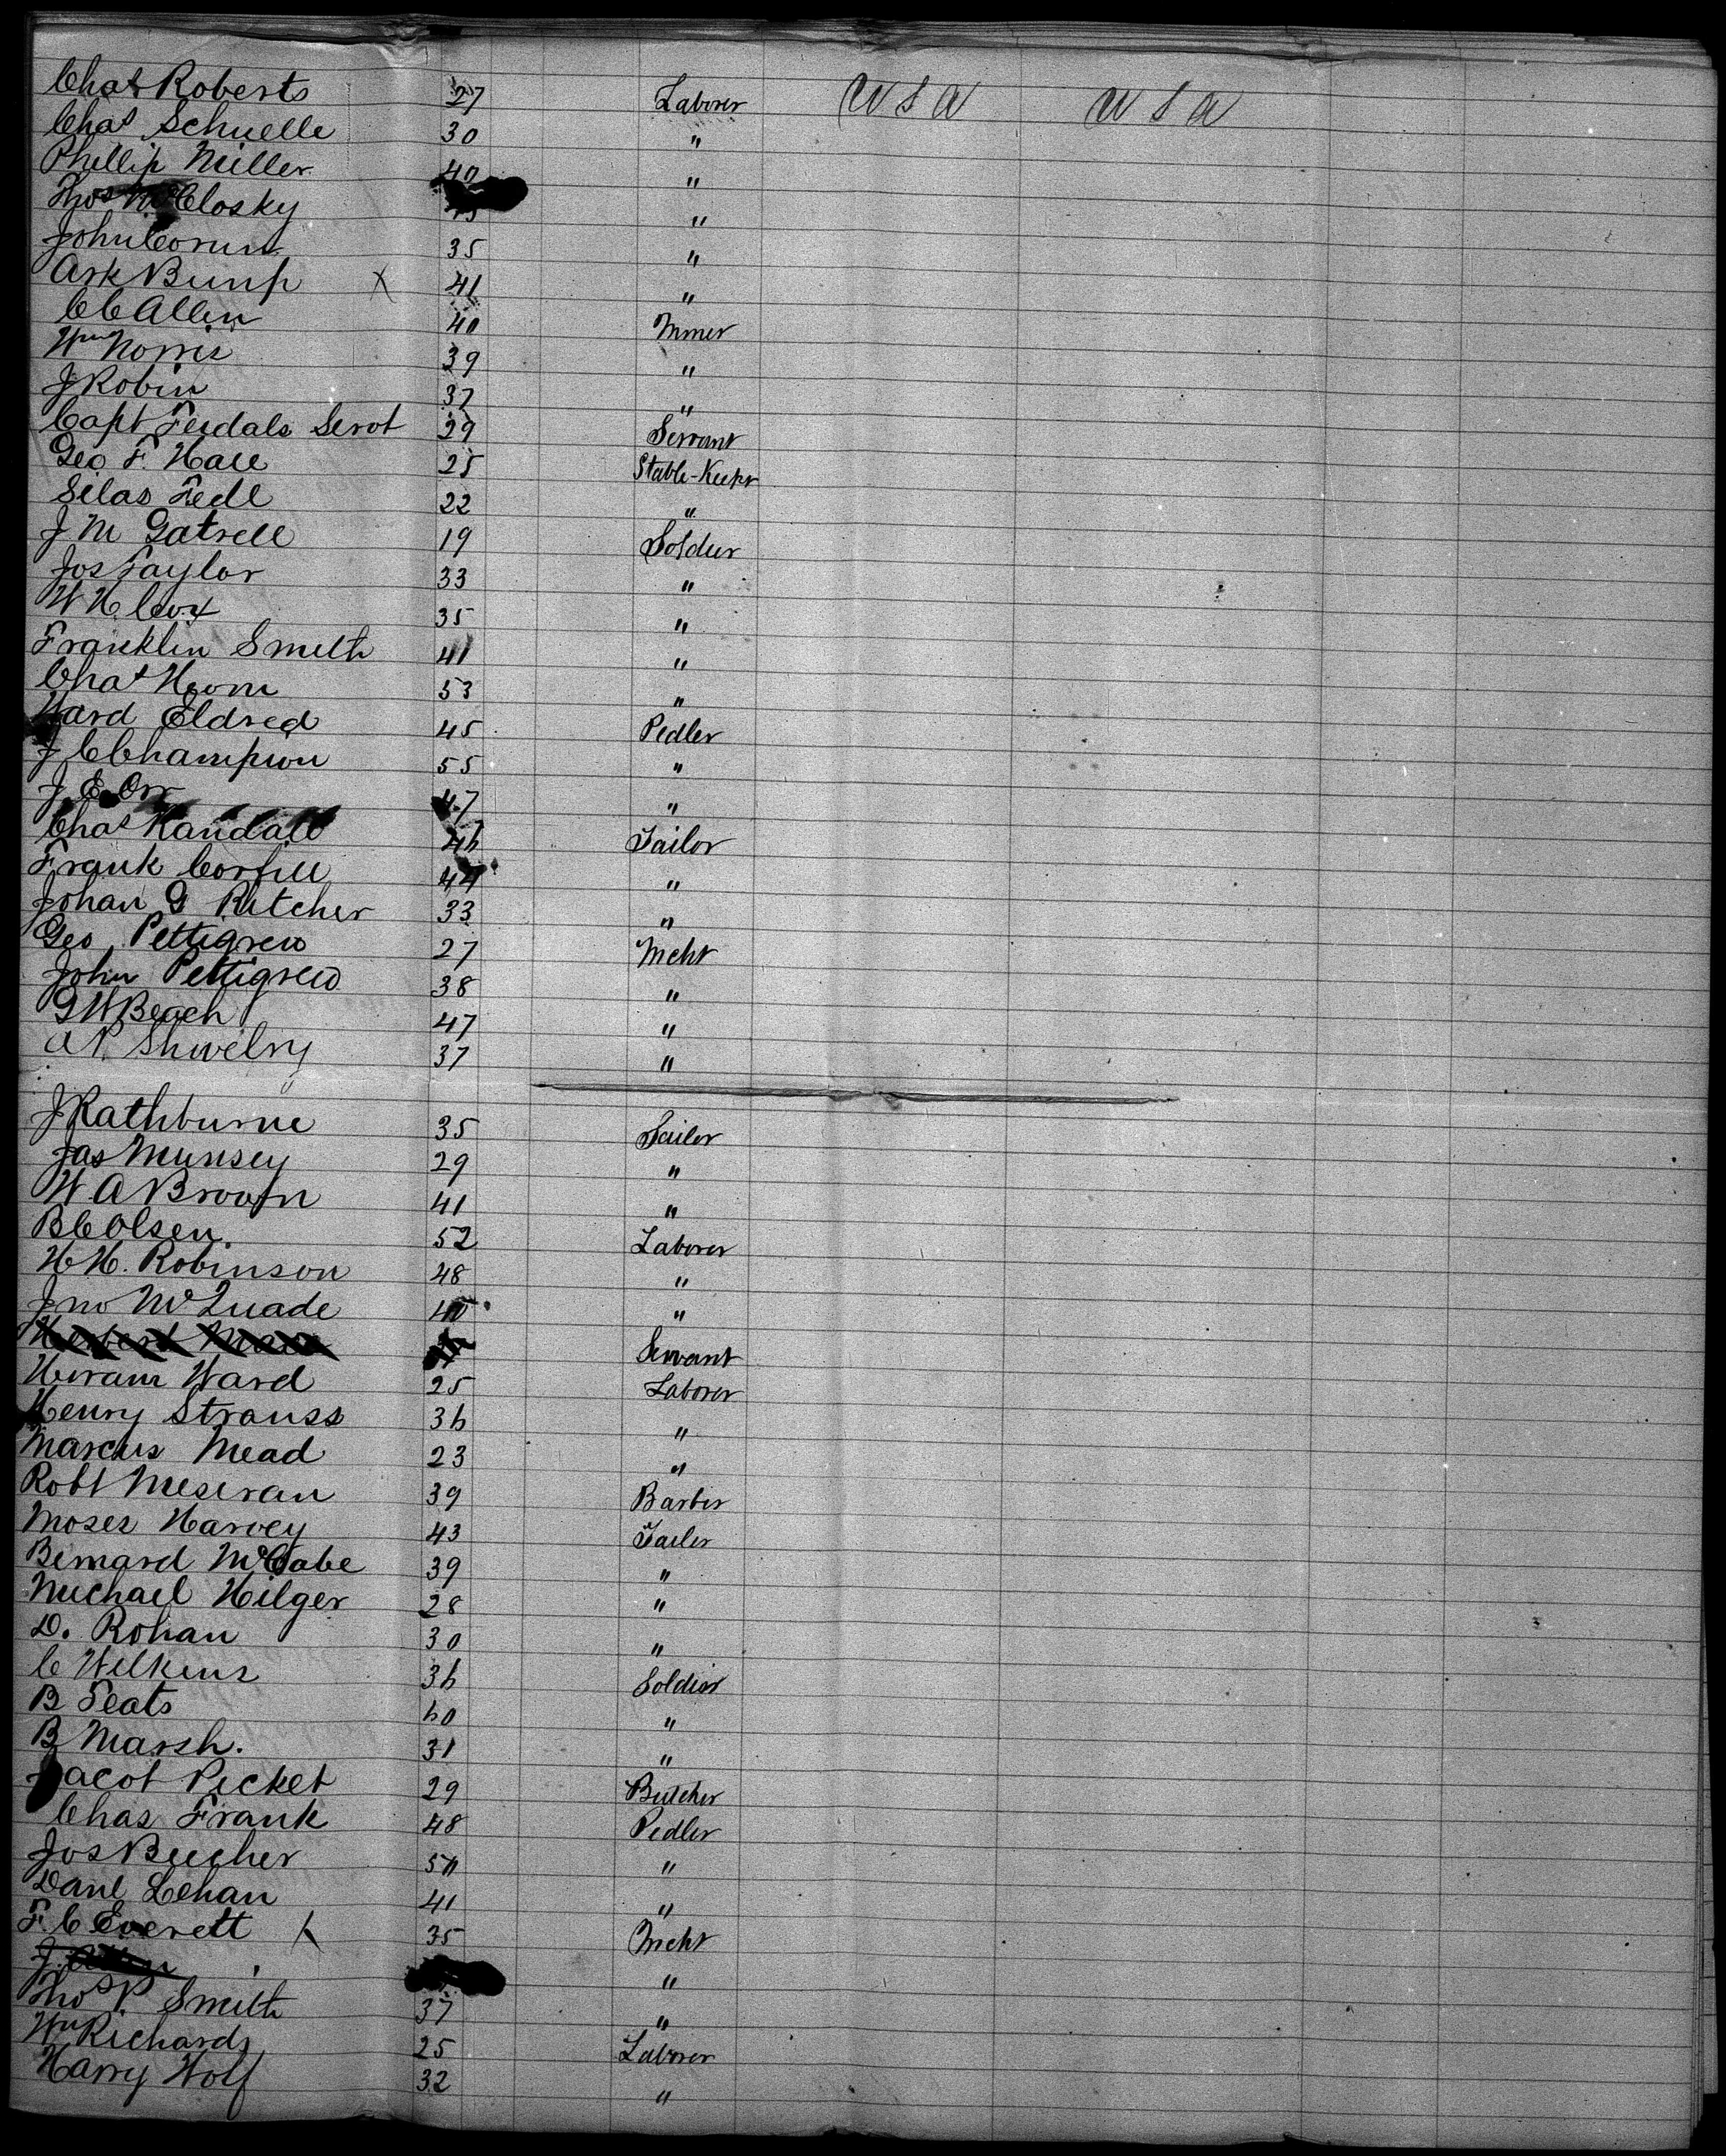 Chas Roberts 27 Laborer U S A U S A
Chas Schuelle 30 "
Phillip Miller 40 "
Thos McClosky "
John Corum 35 "
Ask Bump X 41 "
C C Allen 40 Miner
Wm Norris 39 "
J Robin 37 "
Capt Tisdals Servt 29 Servant
Geo F. Hall 25 Stable-Keepr
Silas Tedl 22 "
J M Gatrell 19 Soldier
Jos Taylor 33 "
W H Cox 35 "
Franklin Smith 41 "
Chas Horn 53 "
Ward Eldred 45 Pedler
J C Champion 55 "
J. E. Orr 47 "
Chas Randall 46 Tailor
Frank Corfill 44 "
Johan G Ritcher 33 "
Geo Pettigrew 27 Mcht
John Pettigrew 38 "
G W Beach 47 "
A P. 37 "
J Rathburne 35 Sailor
Jas Munsey 29 "
W. A Brown 41 "
B C Olsen. 52 Laborer
H H. Robinson 48 "
Jno McQuade 40 "
Servant
Hiram Ward 25 Laborer
Henry Strauss 36 "
Marcus Mead 23 "
Robt Meseran 39 Barber
Moses Harvey 43 Tailor
Bernard McCabe 39 "
Michael Hilger 28 "
D. Rohan 30 "
C Wilkins 36 Soldier
B Teats 60 "
B Marsh. 31 "
Jacob Picket 29 Butcher
Chas Frank 48 Pedler
Jos Beecher 50 "
Danl Lehan 41 "
F. C Everett X 35 Mcht
J. "
Thos P. Smith 37 "
Wm Richards 25 Laborer
Harry Wolf 32 "